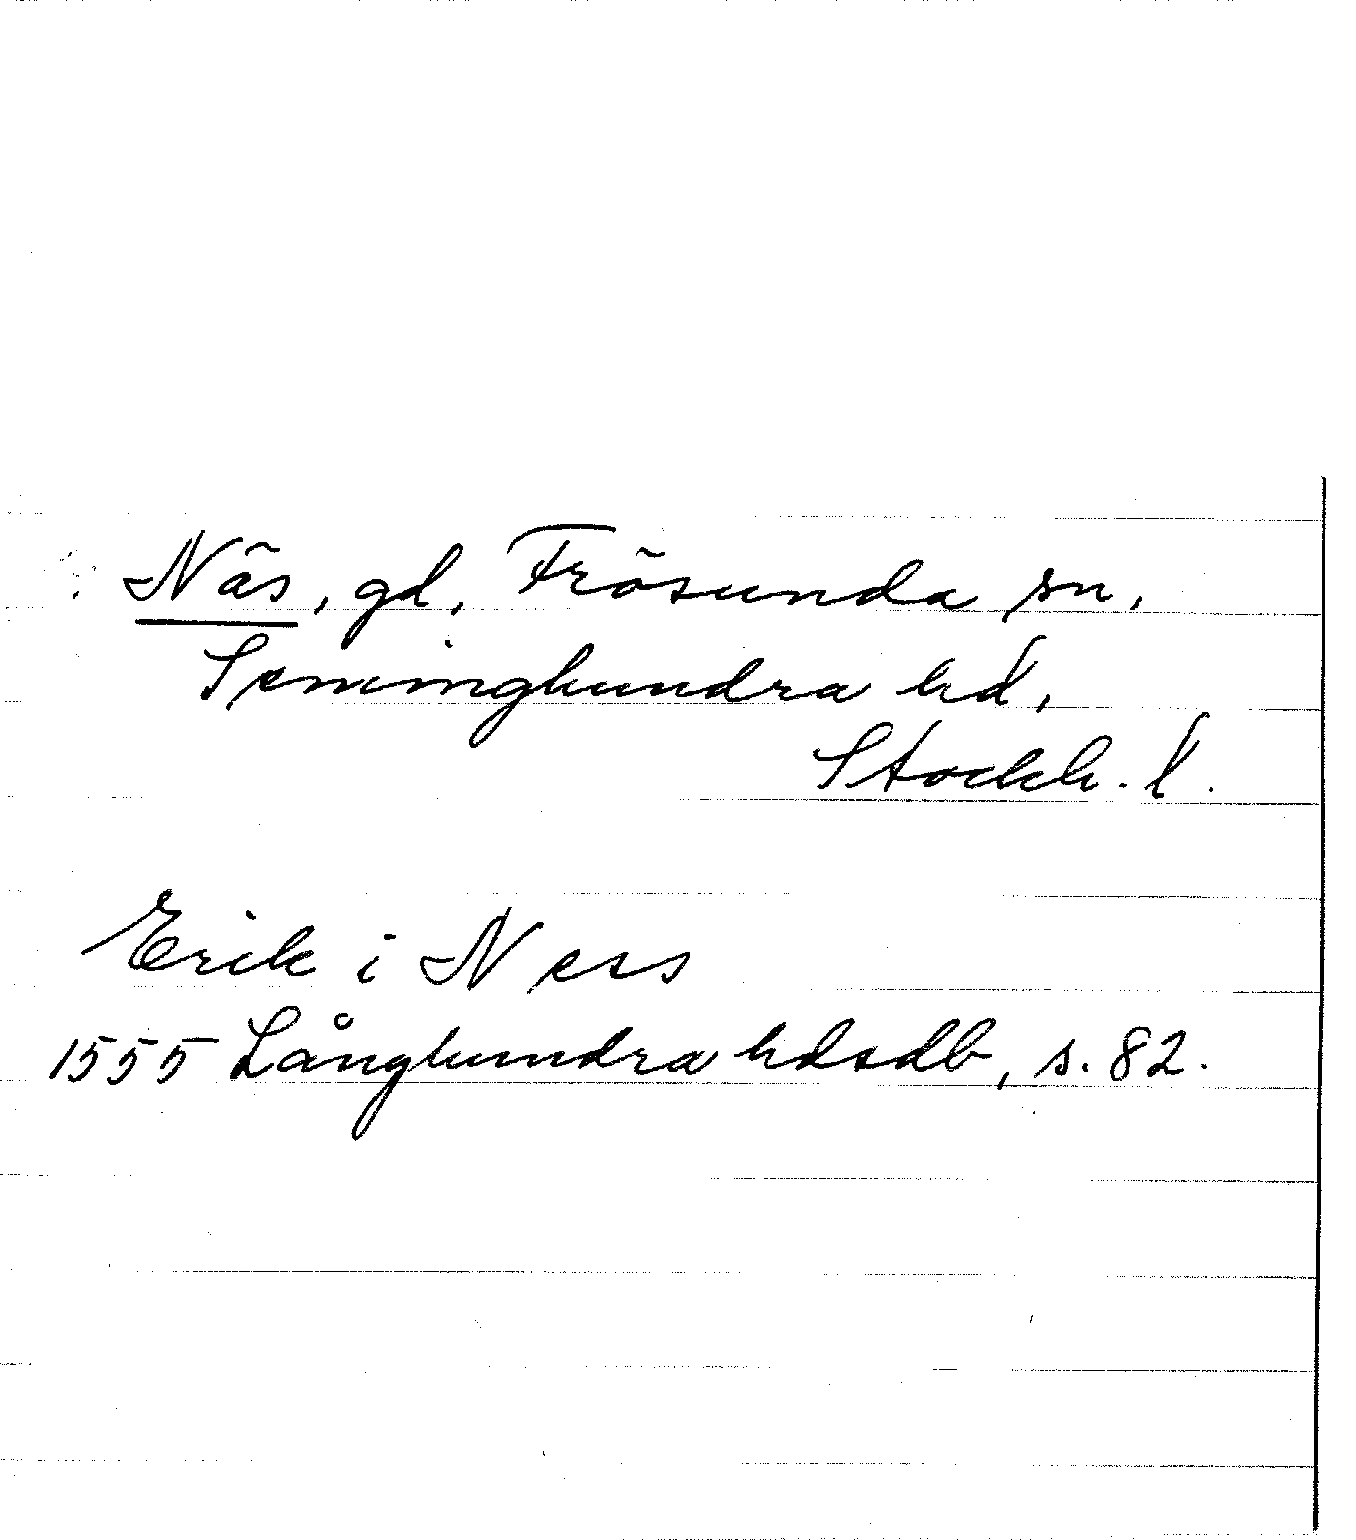 Näs, gd, Frösunda sn,
Seminghundra hd,
Stockh. l.
Erik i Ness
1555 Långhundra hdsdb, s. 82.